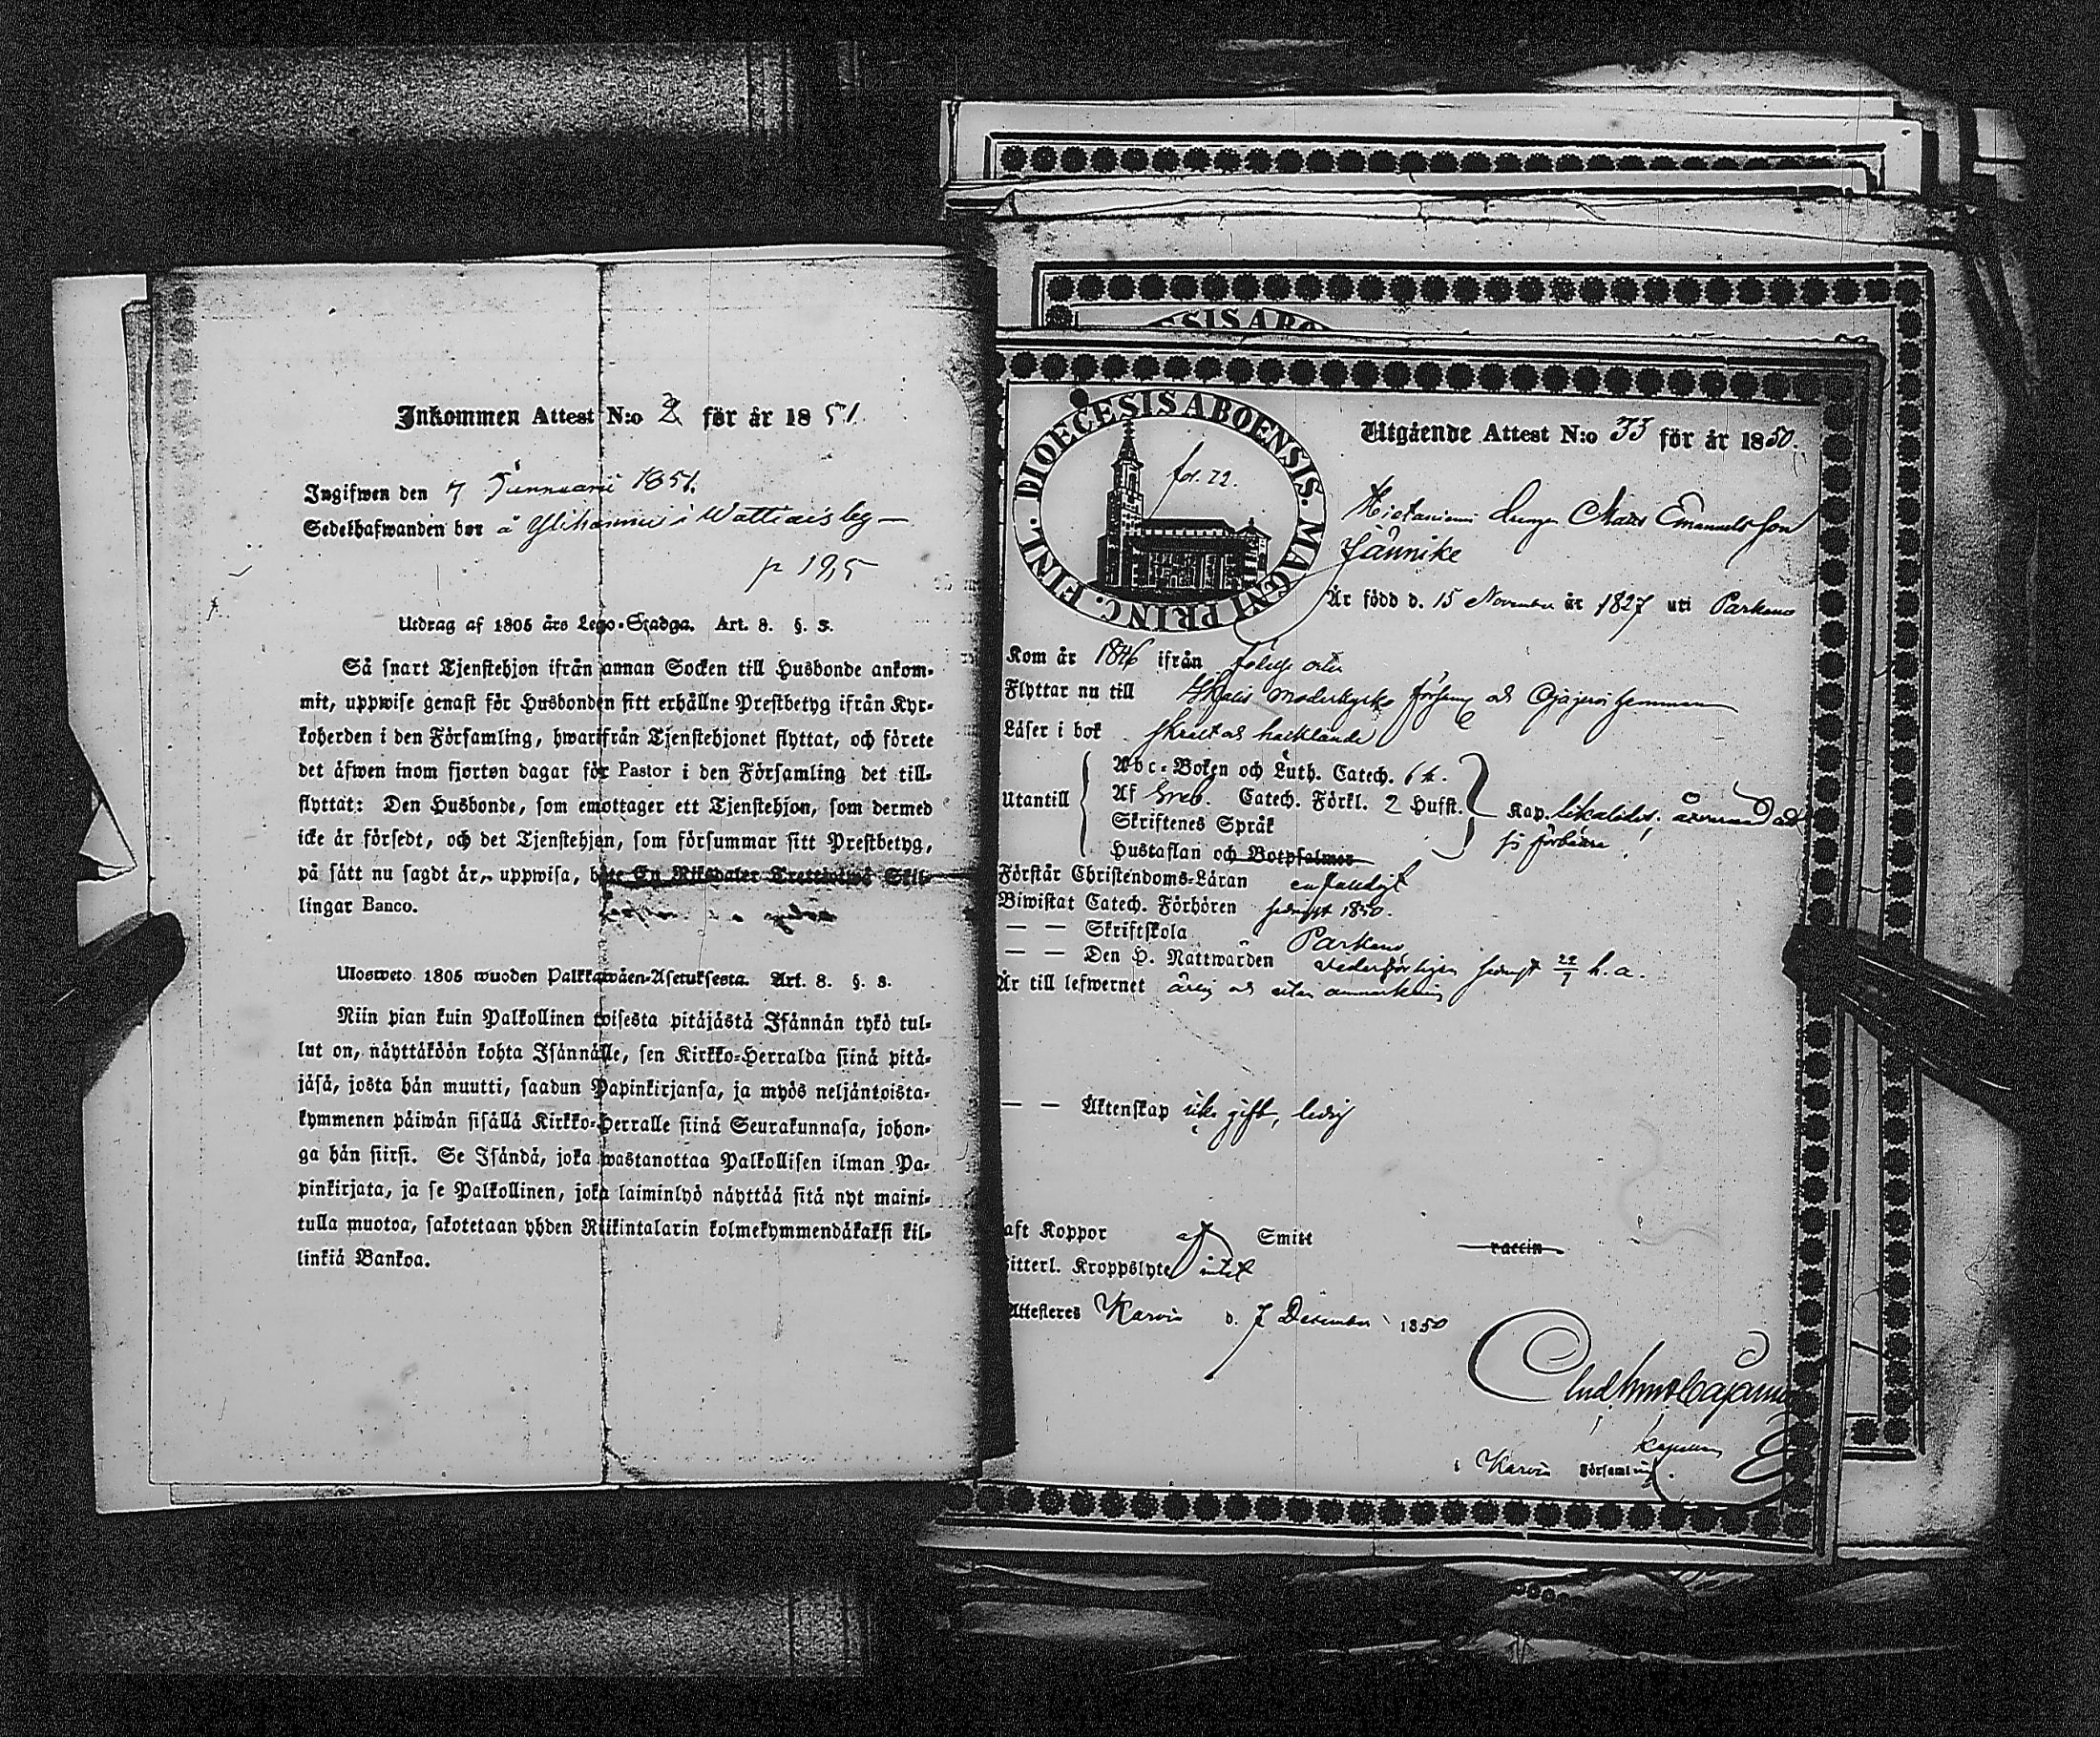 Inkommen Attest N:o 2 för år 1851.
Ingifwen den 7 Januarii 1851.
Sedelhafwanden bor å Ylihannu i Wattiais by —
p 195
Utdrag af 1805 års Lego-Stadga. Art. 8. §. 3.
Så snart Tjenstehjon ifrån annan Socken till Husbonde ankom-
mit, uppwise genast för Husbonden sitt erhållne Prestbetyg ifrån Kyr-
koherden i den Församling, hwarifrån Tjenstehjonet flyttat, och förete
det äfwen inom fjorton dagar för Pastor i den Församling det till-
flyttat: Den Husbonde, som emottager ett Tjenstehjon, som dermed
icke är försedt, och det Tjenstehjon, som försummar sitt Prestbetyg,
på sätt nu sagdt är, uppwisa, böte En Riksdaler Trettiotwå Skil-
lingar Banco.
Ulosweto 1805 wuoden Palkkawäen-Asetuksesta. Art. 8. §. 3.
Niin pian kuin Palkollinen toisesta pitäjästä Isännän tykö tul-
lut on, näyttäköön kohta Isännälle, sen Kirkko-Herralda siinä pitä-
jäsä, josta hän muutti, saadun Papinkirjansa, ja myös neljäntoista-
kymmenen päiwän sisällä Kirkko-Herralle siinä Seurakunnasa, johon-
ga hän siirsi. Se Isändä, joka wastanottaa Palkollisen ilman Pa-
pinkirjata, ja se Palkollinen, joka laiminlyö näyttää sitä nyt maini-
tulla muotoa, sakotetaan yhden Riikintalarin kolmekymmendäkaksi kil-
linkiä Bankoa.
DIOECESIS ABOENSIS. MAGNI PRINC. FINL.
fol. 72.
Utgående Attest N:o 33 för år 1850.
Drengen Mats Emanuelsson
Jännike
Är född d. 15 November år 1827 uti Parkano
Kom år 1846 ifrån
Flyttar nu till moderkyrko
Läser i bok
Utantill
Abc-Boken och Luth. Catech. 6 h.
Af Greb. Catech. Förkl. 2 Hufst.
Skriftenes Språk
Hustaflan och Botpsalmer
Kap.
Förstår Christendoms-Läran enfaldigt
Biwistat Catech. Förhören sednast 1850.
— — Skriftskola Parkano
— — Den H. Nattwarden sednast 21/7 h. a.
Är till lefwernet ärlig och utan anmärkning
— — Äktenskap icke gift, ledig
aft Koppor af Smitt vaccin
itterl. Kroppslyte intet
Attesteres Karvia d. 7 December 1850
kapellan
i Karvia Församling.
ESIS ABO